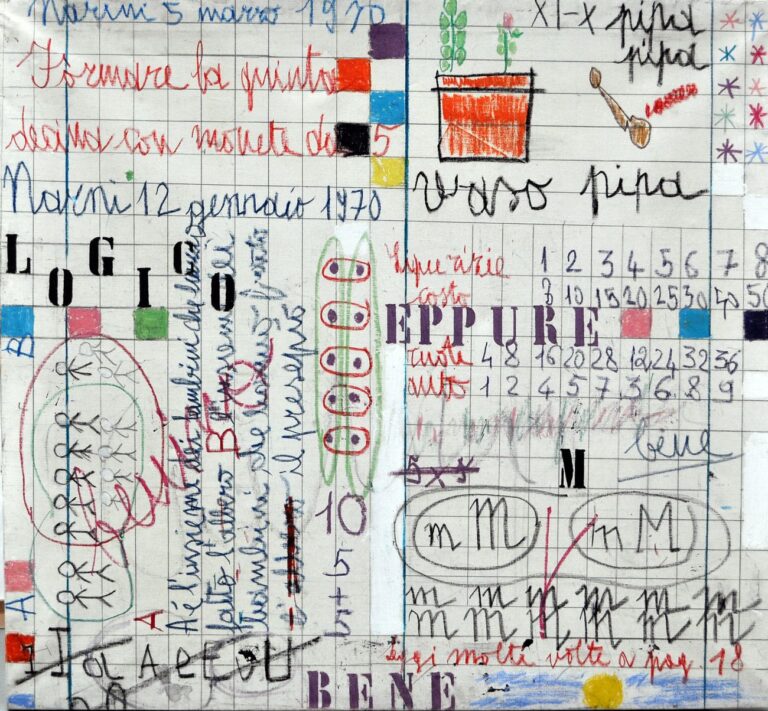 Narni 5 marzo 1970
Formare la quinta
decina con monete da 5
Narni 12 gennaio 1970
XI-X pipa
pipa
vaso pipa
LOGICO
B
A
A è l'insieme dei bambini che hanno
fatto il lavoro B insieme dei
bambini che hanno finito
il presepio
A
10
5+5
1 2 3 4 5 6 7 8
costo 10 15 20 25 30 40 50
EPPURE
ruote 4 8 16 20 28 12 24 32 36
auto 1 2 4 5 7 3 6 8 9
bene
5 x 5
M
m M m M
m m m m m m
m m m m m m
Leggi molte volte a pag 18
a A e E u U
BENE